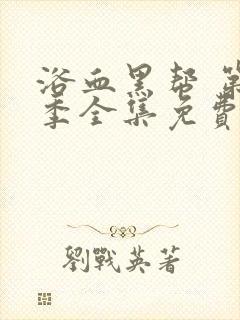 浴血黑帮 第
季全集免费
劉戰英著